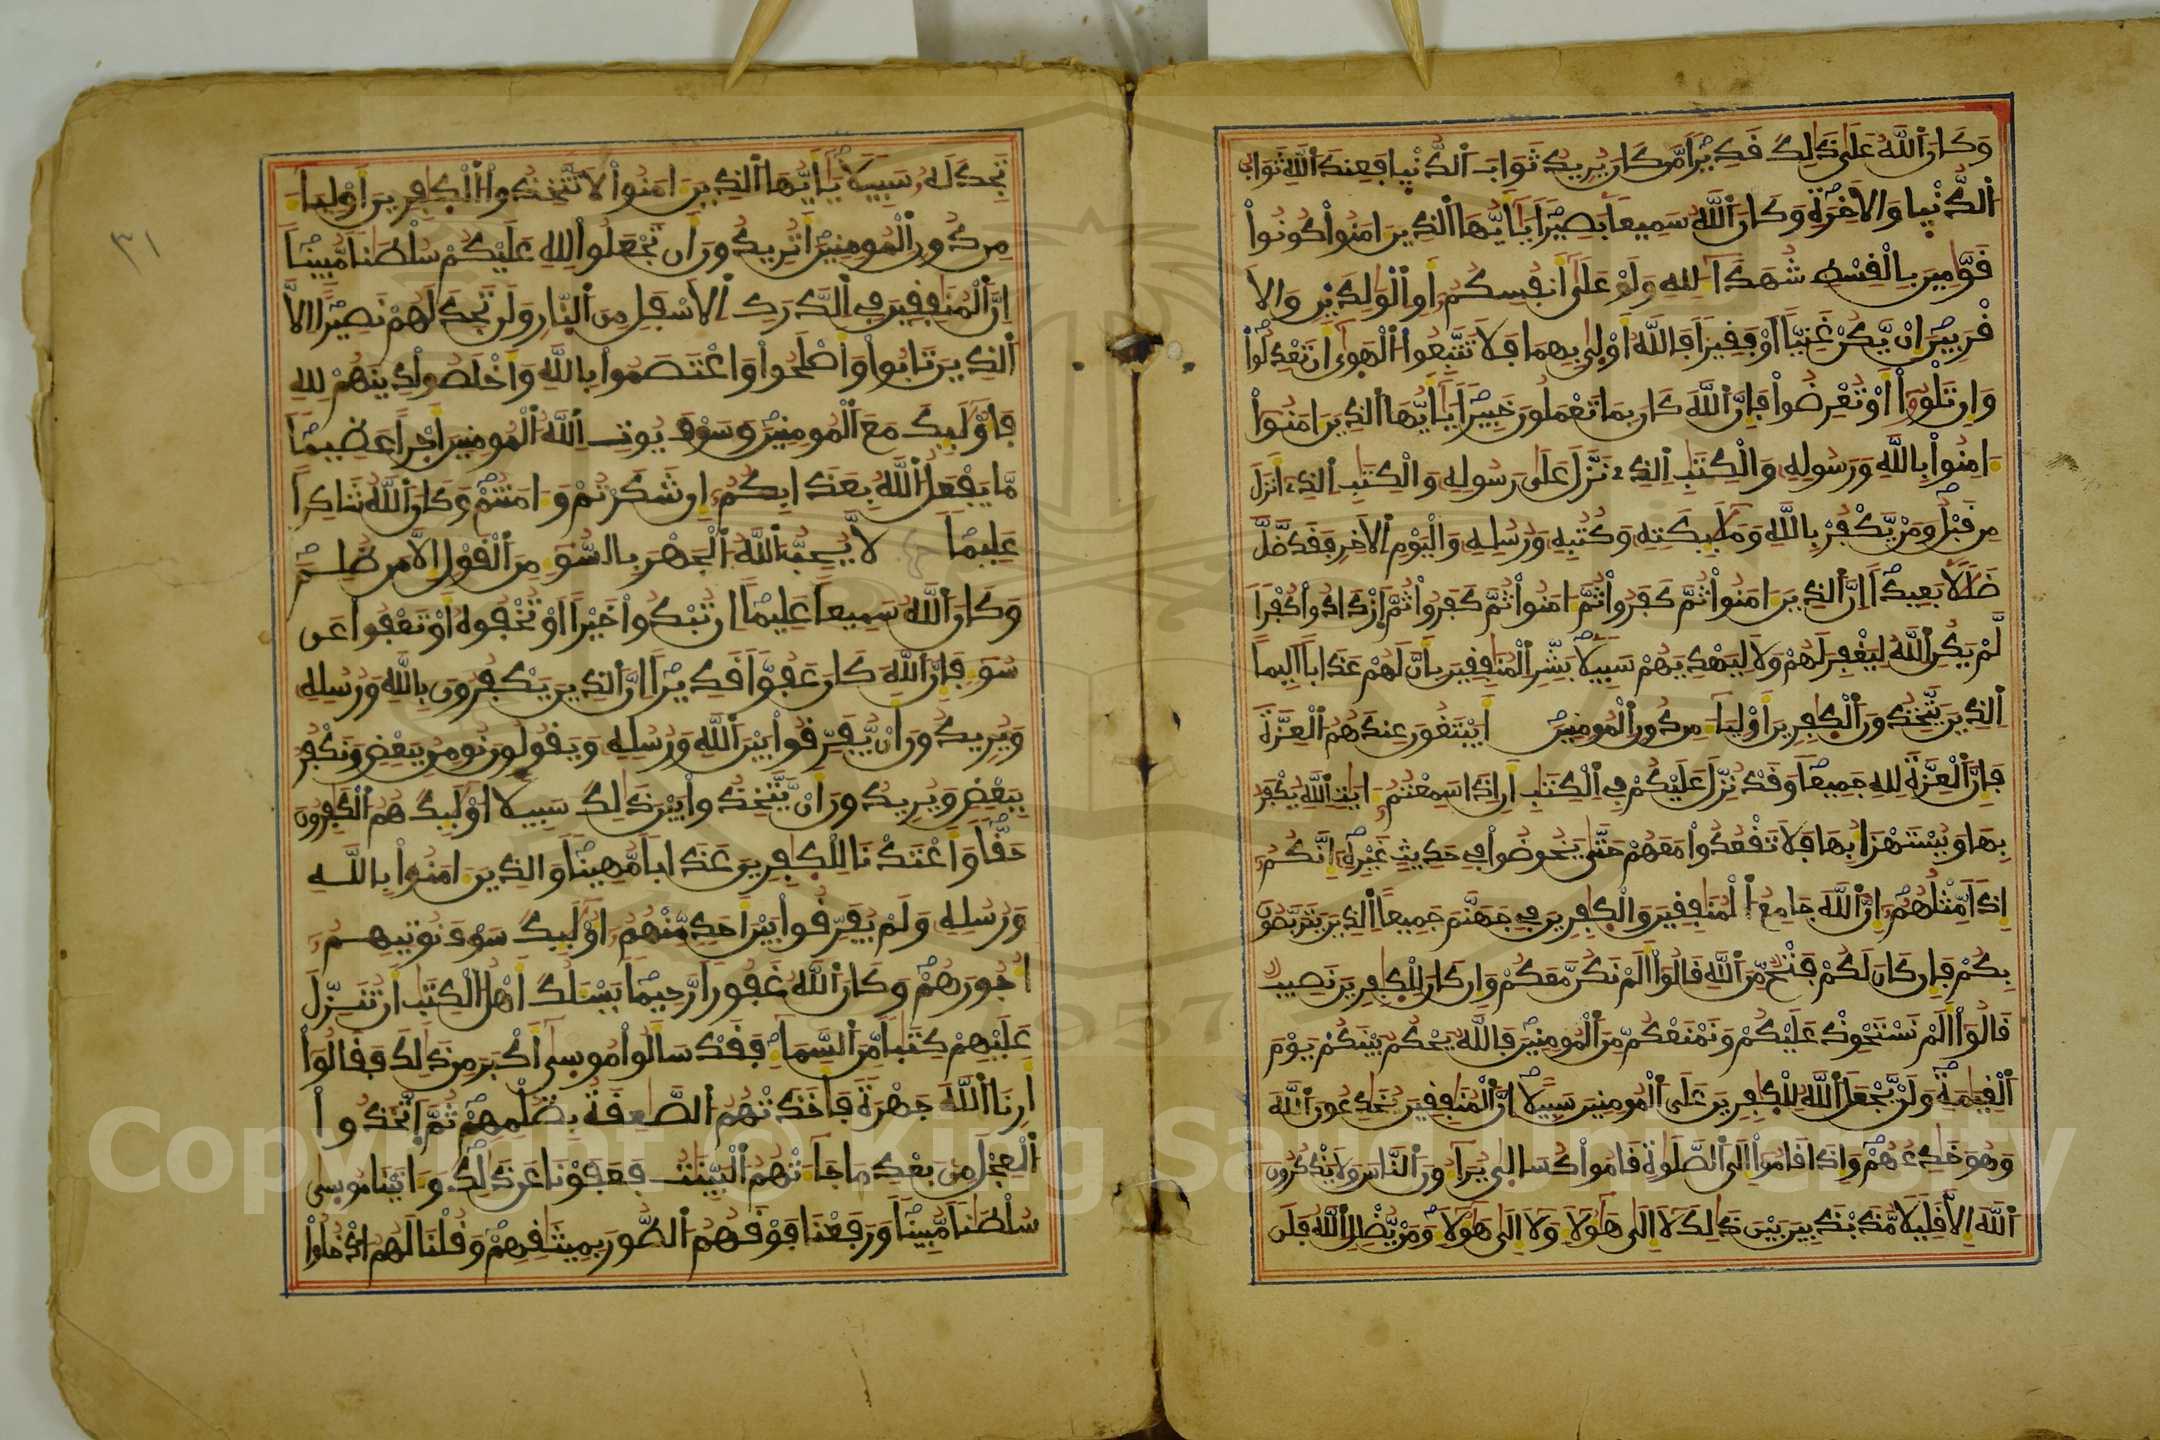 وَكَانَ ٱللَّهُ عَلَىٰ ذَٰلِكَ قَدِيرًا مَّن كَانَ يُرِيدُ ثَوَابَ ٱلدُّنْيَا فَعِندَ ٱللَّهِ ثَوَابُ
ٱلدُّنْيَا وَالَاخِرَةِ وَكَانَ ٱللَّهُ سَمِيعًا بَصِيرًا يَٰأَيُّهَا ٱلذِينَ ءَامَنُوا۟ كُونُوا۟
قَوَّٰمِينَ بِالْقِسْطِ شُهَدَآءَ لِلهِ وَلَوْ عَلَىٰ أَنفُسِكُمُۥٓ أَوِ ٱلْوَٰلِدَيْنِ وَالَا
قْرَبِينَ إِنْ يَّكُنْ غَنِيًّا أَوْ فَقِيرًا فَاللَّهُ أَوْلَىٰ بِهِمَا فَلَا تَتَّبِعُوا۟ ٱلْهَوَىٰٓ أَن تَعْدِلُوا۟
وَإِن تَلْوُۥٓا۟ أَوْ تُعْرِضُوا۟ فَإِنَّ ٱللَّهَ كَانَ بِمَا تَعْمَلُونَ خَبِيرًا يَٰأَيُّهَا ٱلذِينَ ءَامَنُوٓا۟
ءَامِنُوا۟ بِاللَّهِ وَرَسُولِهِ وَالْكِتَٰبِ ٱلذِے نَزَّلَ عَلَىٰ رَسُولِهِ وَالْكِتَٰبِ ٱلذِےٓ أَنزَلَ
مِن قَبْلُ وَمَنْ يَّكْفُرْ بِاللَّهِ وَمَلَٰٓئِكَتِهِ وَكُتُبِهِ وَرُسُلِهِ وَالْيَوْمِ ٱلَاخِرِ فَقَد ضَّلَّ
ضَلَٰلًا بَعِيدًا إِنَّ ٱلذِينَ ءَامَنُوا۟ ثُمَّ كَفَرُوا۟ ثُمَّ ءَامَنُوا۟ ثُمَّ كَفَرُوا۟ ثُمَّ ٱزْدَادُوا۟ كُفْرًا
لَّمْ يَكُنِ ٱللَّهُ لِيَغْفِرَ لَهُمْ وَلَا لِيَهْدِيَهُمْ سَبِيلًا بَشِّرِ ٱلْمُنَٰفِقِينَ بِأَنَّ لَهُمْ عَذَابًا أَلِيمًا
ٱلذِينَ يَتَّخِذُونَ ٱلْكَٰفِرِينَ أَوْلِيَآءَ مِن دُونِ ٱلْمُومِنِينَ أَيَبْتَغُونَ عِندَهُمُ ٱلْعِزَّةَ
فَإِنَّ ٱلْعِزَّةَ لِلهِ جَمِيعًا وَقَدْ نُزِّلَ عَلَيْكُمْ فِي ٱلْكِتَٰبِ أَنِ إِذَا سَمِعْتُمُۥٓ ءَايَٰتِ ٱللَّهِ يُكْفَرُ
بِهَا وَيُسْتَهْزَأُ بِهَا فَلَا تَقْعُدُوا۟ مَعَهُمْ حَتَّىٰ يَخُوضُوا۟ فِي حَدِيثٍ غَيْرِهِۦٓ إِنَّكُمُۥٓ
إِذًا مِّثْلُهُمُۥٓ إِنَّ ٱللَّهَ جَامِعُ ٱلْمُنَٰفِقِينَ وَالْكَٰفِرِينَ فِي جَهَنَّمَ جَمِيعًا ٱلذِينَ يَتَرَبَّصُونَ
بِكُمْ فَإِن كَانَ لَكُمْ فَتْحٌ مِّنَ ٱللَّهِ قَالُوٓا۟ أَلَمْ نَكُن مَّعَكُمْ وَإِن كَانَ لِلْكَٰفِرِينَ نَصِيبٌ
قَالُوٓا۟ أَلَمْ نَسْتَحْوِذْ عَلَيْكُمْ وَنَمْنَعْكُم مِّنَ ٱلْمُومِنِينَ فَاللَّهُ يَحْكُمُ بَيْنَكُمْ يَوْمَ
ٱلْقِيَٰمَةِ وَلَنْ يَّجْعَلَ ٱللَّهُ لِلْكَٰفِرِينَ عَلَى ٱلْمُومِنِينَ سَبِيلًا إِنَّ ٱلْمُنَٰفِقِينَ يُخَٰدِعُونَ ٱللَّهَ
وَهُوَ خَٰدِعُهُمْ وَإِذَا قَامُوٓا۟ إِلَى ٱلصَّلَوٰةِ قَامُوا۟ كُسَالَىٰ يُرَآءُونَ ٱلنَّاسَ وَلَا يَذْكُرُونَ
ٱللَّهَ إِلَّا قَلِيلًا مُّذَبْذَبِينَ بَيْنَ ذَٰلِكَ لَآ إِلَىٰ هَٰٓؤُلَآءِ وَلَآ إِلَىٰ هَٰٓؤُلَآءِ وَمَنْ يُّضْلِلِ ٱللَّهُ فَلَن
تَجِدَ لَهُۥ سَبِيلًا يَٰأَيُّهَا ٱلذِينَ ءَامَنُوا۟ لَا تَتَّخِذُوا۟ ٱلْكَٰفِرِينَ أَوْلِيَآءَ
مِن دُونِ ٱلْمُومِنِينَ أَتُرِيدُونَ أَن تَجْعَلُوا۟ لِلهِ عَلَيْكُمْ سُلْطَٰنًا مُّبِينًا
إِنَّ ٱلْمُنَٰفِقِينَ فِي ٱلدَّرَكِ ٱلَاسْفَلِ مِنَ ٱلنَّارِ وَلَن تَجِدَ لَهُمْ نَصِيرًا إِلَّا
ٱلذِينَ تَابُوا۟ وَأَصْلَحُوا۟ وَاعْتَصَمُوا۟ بِاللَّهِ وَأَخْلَصُوا۟ دِينَهُمْ لِلهِ
فَأُو۟لَٰٓئِكَ مَعَ ٱلْمُومِنِينَ وَسَوْفَ يُوتِ ٱللَّهُ ٱلْمُومِنِينَ أَجْرًا عَظِيمًا
مَّا يَفْعَلُ ٱللَّهُ بِعَذَابِكُمُۥٓ إِن شَكَرْتُمْ وَءَامَنتُمْ وَكَانَ ٱللَّهُ شَاكِرًا
عَلِيمًا لَّا يُحِبُّ ٱللَّهُ ٱلْجَهْرَ بِالسُّوٓءِ مِنَ ٱلْقَوْلِ إِلَّا مَن ظُلِمَ
وَكَانَ ٱللَّهُ سَمِيعًا عَلِيمًا إِن تُبْدُوا۟ خَيْرًا أَوْ تُخْفُوهُ أَوْ تَعْفُوا۟ عَن
سُوٓءٍ فَإِنَّ ٱللَّهَ كَانَ عَفُوًّا قَدِيرًا إِنَّ ٱلذِينَ يَكْفُرُونَ بِاللَّهِ وَرُسُلِهِ
وَيُرِيدُونَ أَنْ يُّفَرِّقُوا۟ بَيْنَ ٱللَّهِ وَرُسُلِهِ وَيَقُولُونَ نُومِنُ بِبَعْضٍ وَنَكْفُرُ
بِبَعْضٍ وَيُرِيدُونَ أَنْ يَّتَّخِذُوا۟ بَيْنَ ذَٰلِكَ سَبِيلًا أُو۟لَٰٓئِكَ هُمُ ٱلْكَٰفِرُونَ
حَقًّا وَأَعْتَدْنَا لِلْكَٰفِرِينَ عَذَابًا مُّهِينًا وَالذِينَ ءَامَنُوا۟ بِاللَّهِ
وَرُسُلِهِ وَلَمْ يُفَرِّقُوا۟ بَيْنَ أَحَدٍ مِّنْهُمُۥٓ أُو۟لَٰٓئِكَ سَوْفَ نُوتِيهِمُۥٓ
أُجُورَهُمْ وَكَانَ ٱللَّهُ غَفُورًا رَّحِيمًا يَسْـَٔلُكَ أَهْلُ ٱلْكِتَٰبِ أَن تُنَزِّلَ
عَلَيْهِمْ كِتَٰبًا مِّنَ ٱلسَّمَآءِ فَقَدْ سَأَلُوا۟ مُوسَىٰٓ أَكْبَرَ مِن ذَٰلِكَ فَقَالُوٓا۟
أَرِنَا ٱللَّهَ جَهْرَةً فَأَخَذَتْهُمُ ٱلصَّٰعِقَةُ بِظُلْمِهِمْ ثُمَّ ٱتَّخَذُوا۟
ٱلْعِجْلَ مِنۢ بَعْدِ مَا جَآءَتْهُمُ ٱلْبَيِّنَٰتُ فَعَفَوْنَا عَن ذَٰلِكَ وَءَاتَيْنَا مُوسَىٰ
سُلْطَٰنًا مُّبِينًا وَرَفَعْنَا فَوْقَهُمُ ٱلطُّورَ بِمِيثَٰقِهِمْ وَقُلْنَا لَهُمُ ٱدْخُلُوا۟
٣١
Copyright © King Saud University
1957